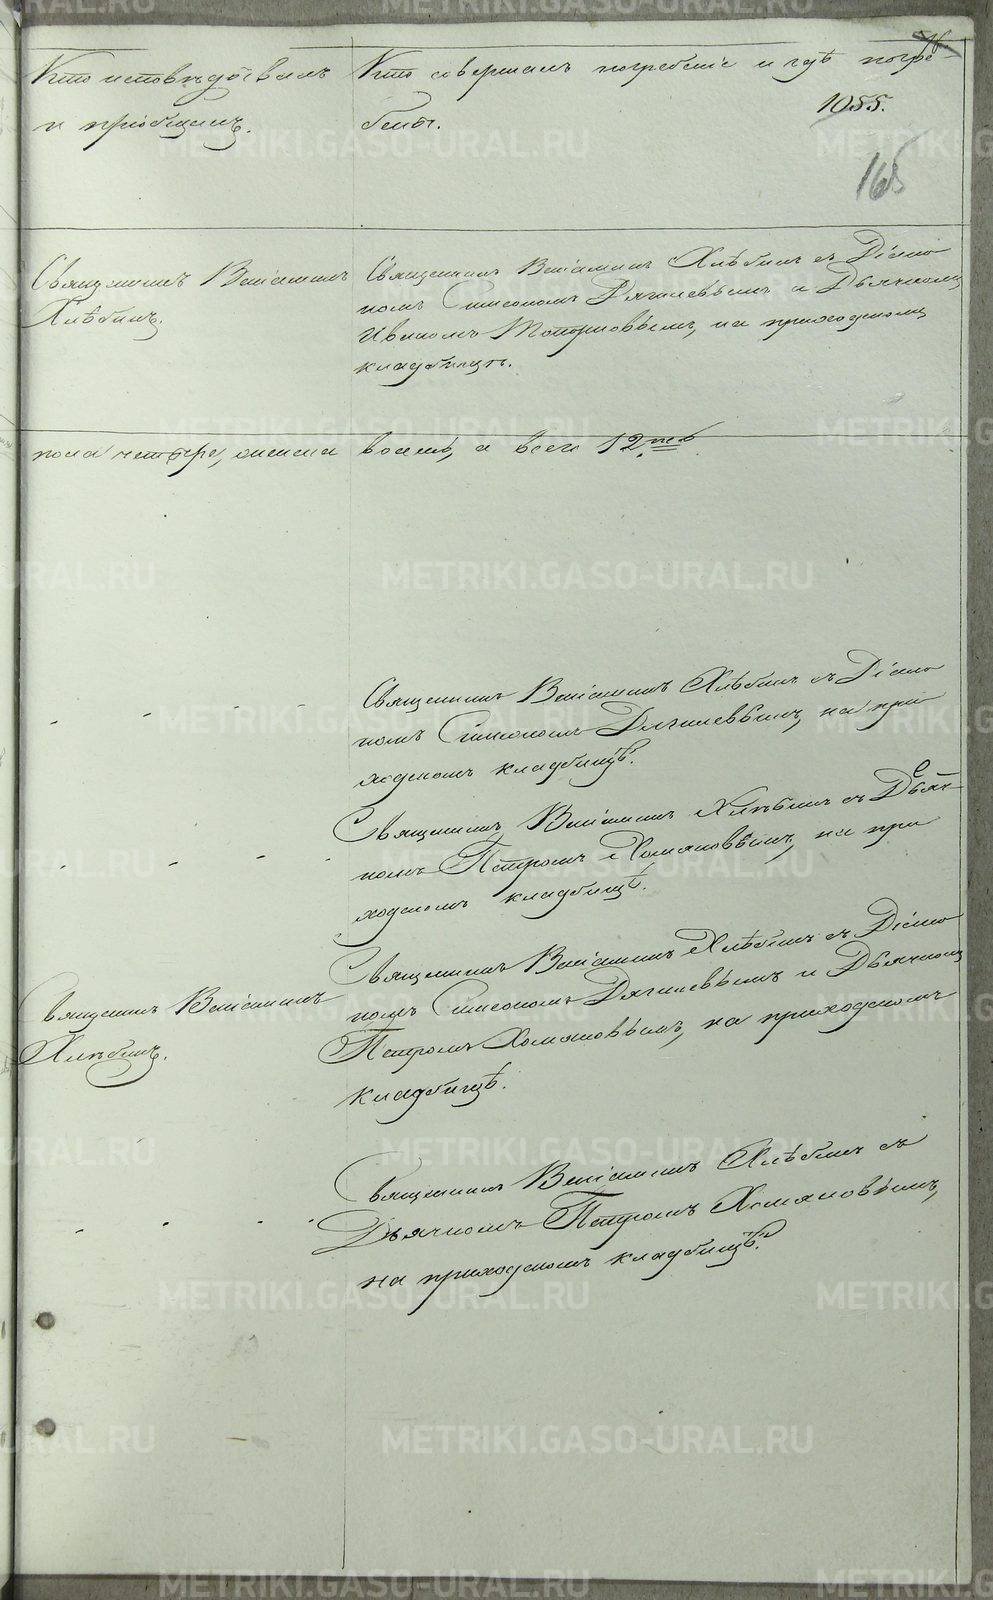 16.
Кто исповѣдывалъ
и прiобщалъ.
Кто совершалъ погребенiе и гдѣ погре-
бены.
1055.
165
Священникъ Венiаминъ
Хлѣбинъ.
Священникъ Венiаминъ Хлѣбинъ съ Дiако
номъ Симеономъ Дягилевымъ и Дьячкомъ
Иваномъ Топорковымъ, на приходскомъ
кладбищѣ.
пола четыре, женска восемь, а всего 12.
Священникъ Венiаминъ Хлѣбинъ съ Дiако
номъ Симеономъ Дягилевымъ, на при
ходскомъ кладбищѣ.
Священникъ Венiаминъ Хлѣбинъ съ Дьяч-
комъ Петромъ Хомяковымъ, на при
ходскомъ кладбищѣ.
Священникъ Венiаминъ
Хлѣбинъ.
Священникъ Венiаминъ Хлѣбинъ съ Дiако
номъ Симеономъ Дягилевымъ и Дьячкомъ
Петромъ Хомяковымъ, на приходскомъ
кладбищѣ.
Священникъ Венiаминъ Хлѣбинъ съ
Дьячкомъ Петромъ Хомяковымъ,
на приходскомъ кладбищѣ.
METRIKI.GASO-URAL.RU